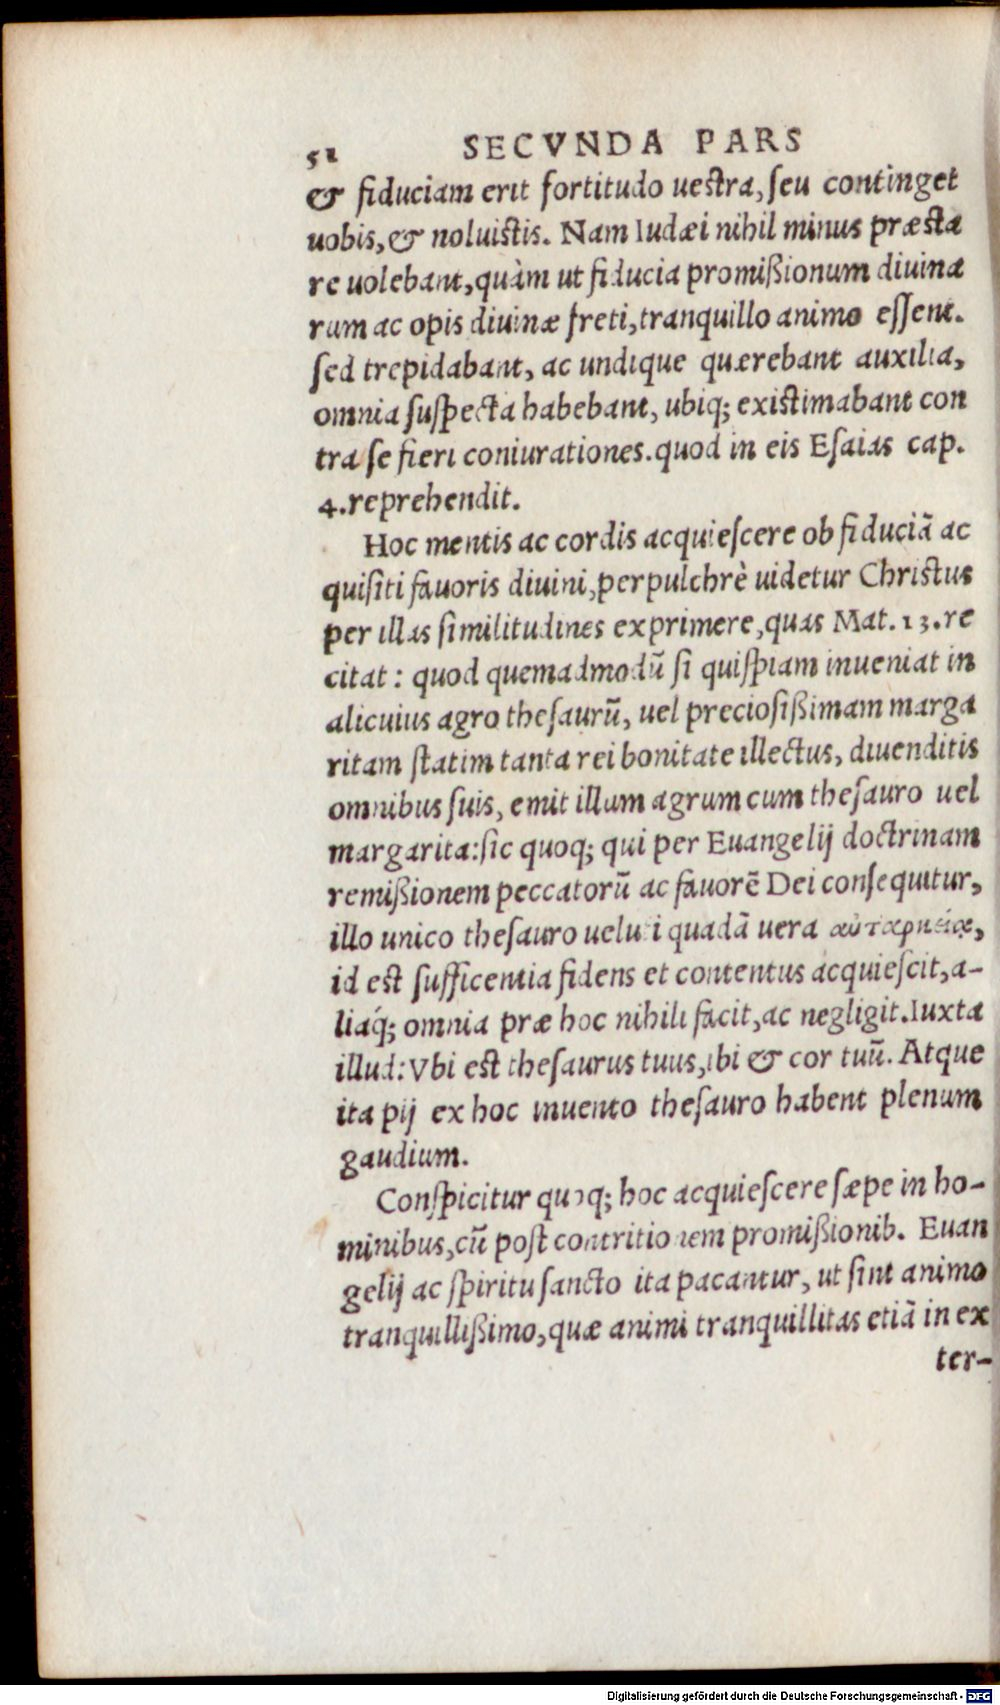 52 SECVNDA PARS
& fiduciam erit fortitudo uestra, ſeu continget
uobis, & noluistis. Nam Iudæi nihil minus præsta
re uolebant, quàm ut fiducia promißionum diuina
rum ac opis diuinæ freti, tranquillo animo eſſent.
ſed trepidabant, ac undique quærebant auxilia,
omnia ſuſpecta habebant, ubiq; existimabant con
tra ſe fieri coniurationes. quod in eis Eſaias cap.
4. reprehendit.
Hoc mentis ac cordis acquieſcere ob fiduciã ac
quiſiti fauoris diuini, perpulchrè uidetur Christus
per illas ſimilitudines exprimere, quas Mat. 13. re
citat: quod quemadmodũ ſi quiſpiam inueniat in
alicuius agro theſaurũ, uel precioſißimam marga
ritam ſtatim tanta rei bonitate illectus, diuenditis
omnibus ſuis, emit illum agrum cum theſauro uel
margarita: ſic quoq; qui per Euangelij doctrinam
remißionem peccatorũ ac fauorẽ Dei conſequitur,
illo unico theſauro ueluti quadã uera αὐταρκείᾳ,
id est ſufficentia fidens et contentus acquieſcit, a-
liaq́; omnia præ hoc nihili facit, ac negligit. Iuxta
illud: Vbi est theſaurus tuus, ibi & cor tuũ. Atque
ita pij ex hoc inuento theſauro habent plenum
gaudium.
Conſpicitur quoq; hoc acquieſcere ſæpe in ho-
minibus, cũ poſt contritionem promißionib. Euan
gelij ac ſpiritu ſancto ita pacantur, ut ſint animo
tranquillißimo, quæ animi tranquillitas etiã in ex
ter-
Digitalisierung gefördert durch die Deutsche Forschungsgemeinschaft - DFG